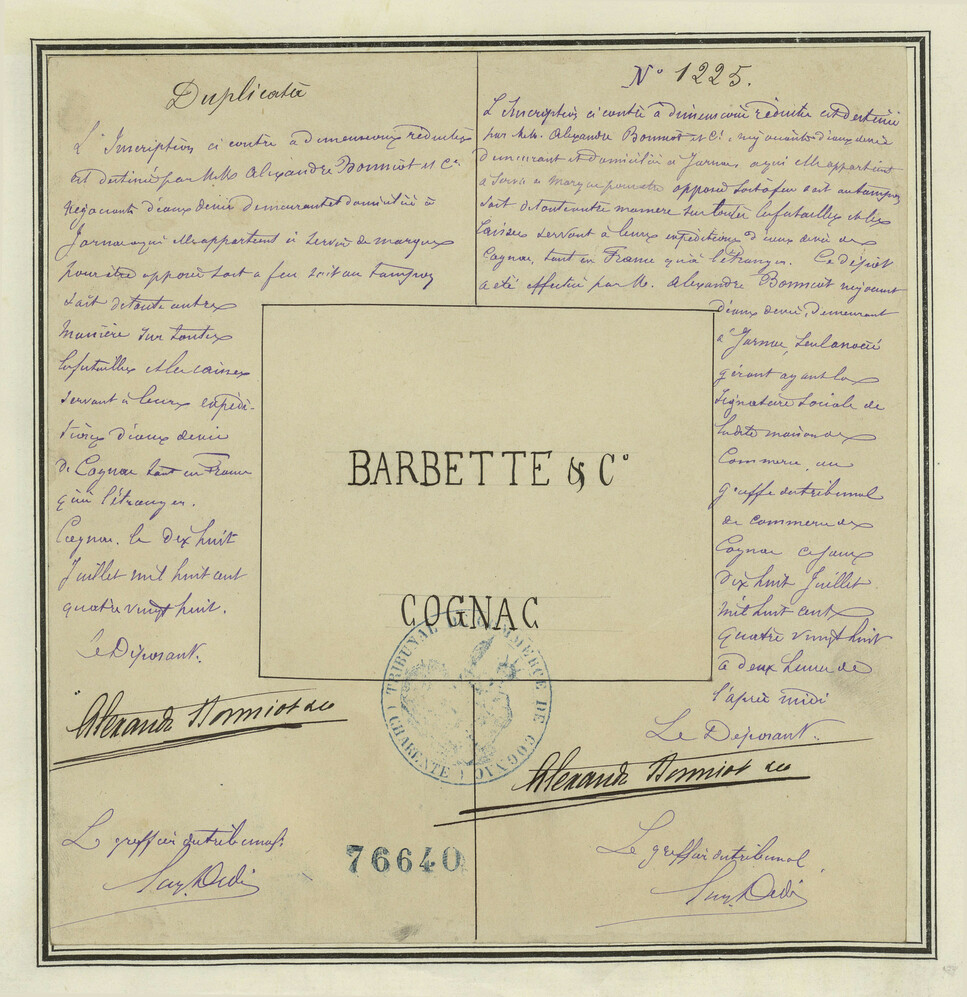 Duplicata
L'Inscription ci contre à dimensions réduites
est destinée par MM. Alexandre Bonniot et Cie
négociants d'eaux de vie demeurant et domiciliés à
Jarnac qui elle appartient à servir de marque
pour être apposée soit à feu soit au tampon
soit de toute autre
manière sur toutes
les futailles et les caisses
servant à leurs expédi-
tions d'eaux de vie
de Cognac tant en France
qu'à l'étranger.
Cognac le dix huit
Juillet mil huit cent
quatre vingt huit.
Le Déposant.
Alexandre Bonniot & Co
Le greffier du tribunal
N° 1225.
L'Inscription ci contre à dimension réduite est destinée
par MM. Alexandre Bonniot et Cie, négociants d'eaux de vie
demeurant et domiciliés à Jarnac, à qui elle appartient
à servir de marque pour être apposée soit à feu soit au tampon
soit de toute autre manière sur toutes les futailles et les
caisses servant à leurs expéditions d'eaux de vie de
Cognac, tant en France qu'à l'étranger. Ce dépôt
a été effectué par M. Alexandre Bonniot négociant
d'eaux de vie, demeurant
à Jarnac, seul associé
gérant ayant la
signature sociale de
la dite maison de
commerce, au
greffe du tribunal
de commerce de
Cognac ce jour
dix huit Juillet
mil huit cent
quatre vingt huit
à deux heures de
l'après midi
Le Déposant.
Alexandre Bonniot & Co
Le greffier du tribunal
BARBETTE & Co
COGNAC
TRIBUNAL DE COMMERCE DE COGNAC (CHARENTE)
76640